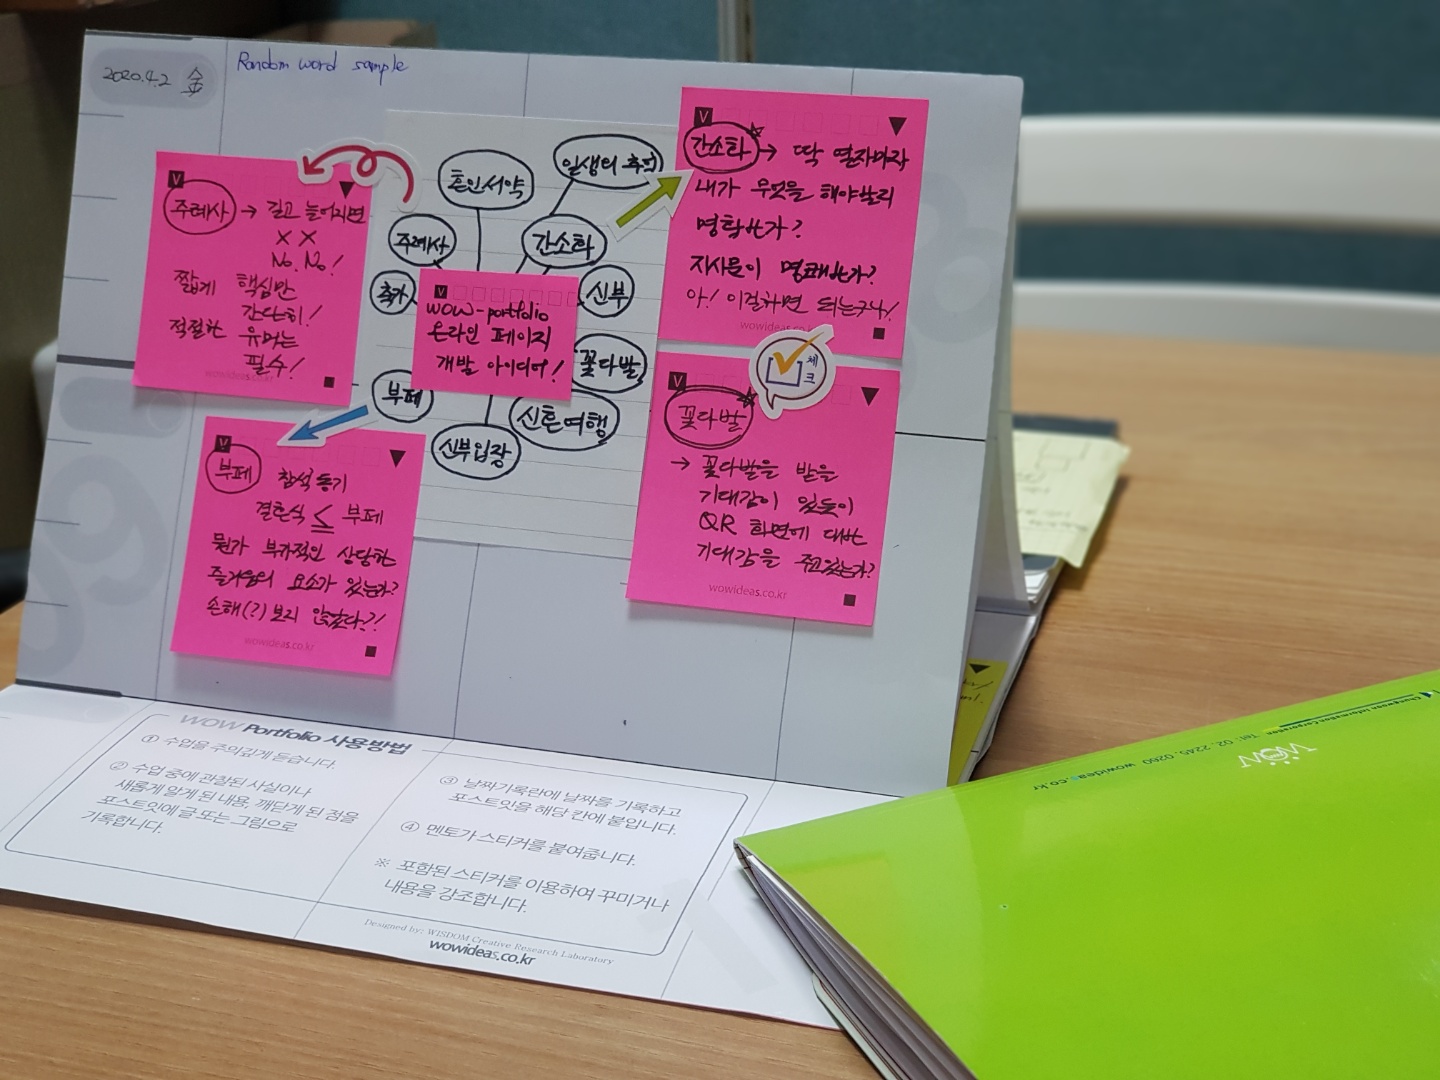 2020.4.2 金
Random word sample
V
주례사 → 길고 늘어지면
X X
No. No!
짧게 핵심만
간단히!
적절한 유머는
필수!
wowideas.co.kr
혼인서약
일생의 추억
주례사
간소화
축가
신부
꽃다발
부페
신혼여행
신부입장
V
WOW-portfolio
온라인 페이지
개발 아이디어!
V
간소화 → 딱 열자마자
내가 무엇을 해야할지
명확한가?
지시문이 명쾌한가?
아! 이걸하면 되는구나!
wowideas.co.kr
체
크
V
꽃다발
→ 꽃다발을 받을
기대감이 있듯이
QR 화면에 대한
기대감을 주고있는가?
wowideas.co.kr
V
부페 참석동기
결혼식 ≤ 부페
뭔가 부가적인 상당한
즐거움의 요소가 있는가?
손해(?)보지 않았다?!
wowideas.co.kr
WOW Portfolio 사용방법
① 수업을 주의깊게 듣습니다.
② 수업 중에 관찰된 사실이나
새롭게 알게 된 내용, 깨닫게 된 점을
포스트잇에 글 또는 그림으로
기록합니다.
③ 날짜기록란에 날짜를 기록하고
포스트잇을 해당 칸에 붙입니다.
④ 멘토가 스티커를 붙여줍니다.
※ 포함된 스티커를 이용하여 꾸미거나
내용을 강조합니다.
Designed by: WISDOM Creative Research Laboratory
wowideas.co.kr
WOW
Changwoon Information Corporation Tel: 02. 2245. 0260 wowideas.co.kr